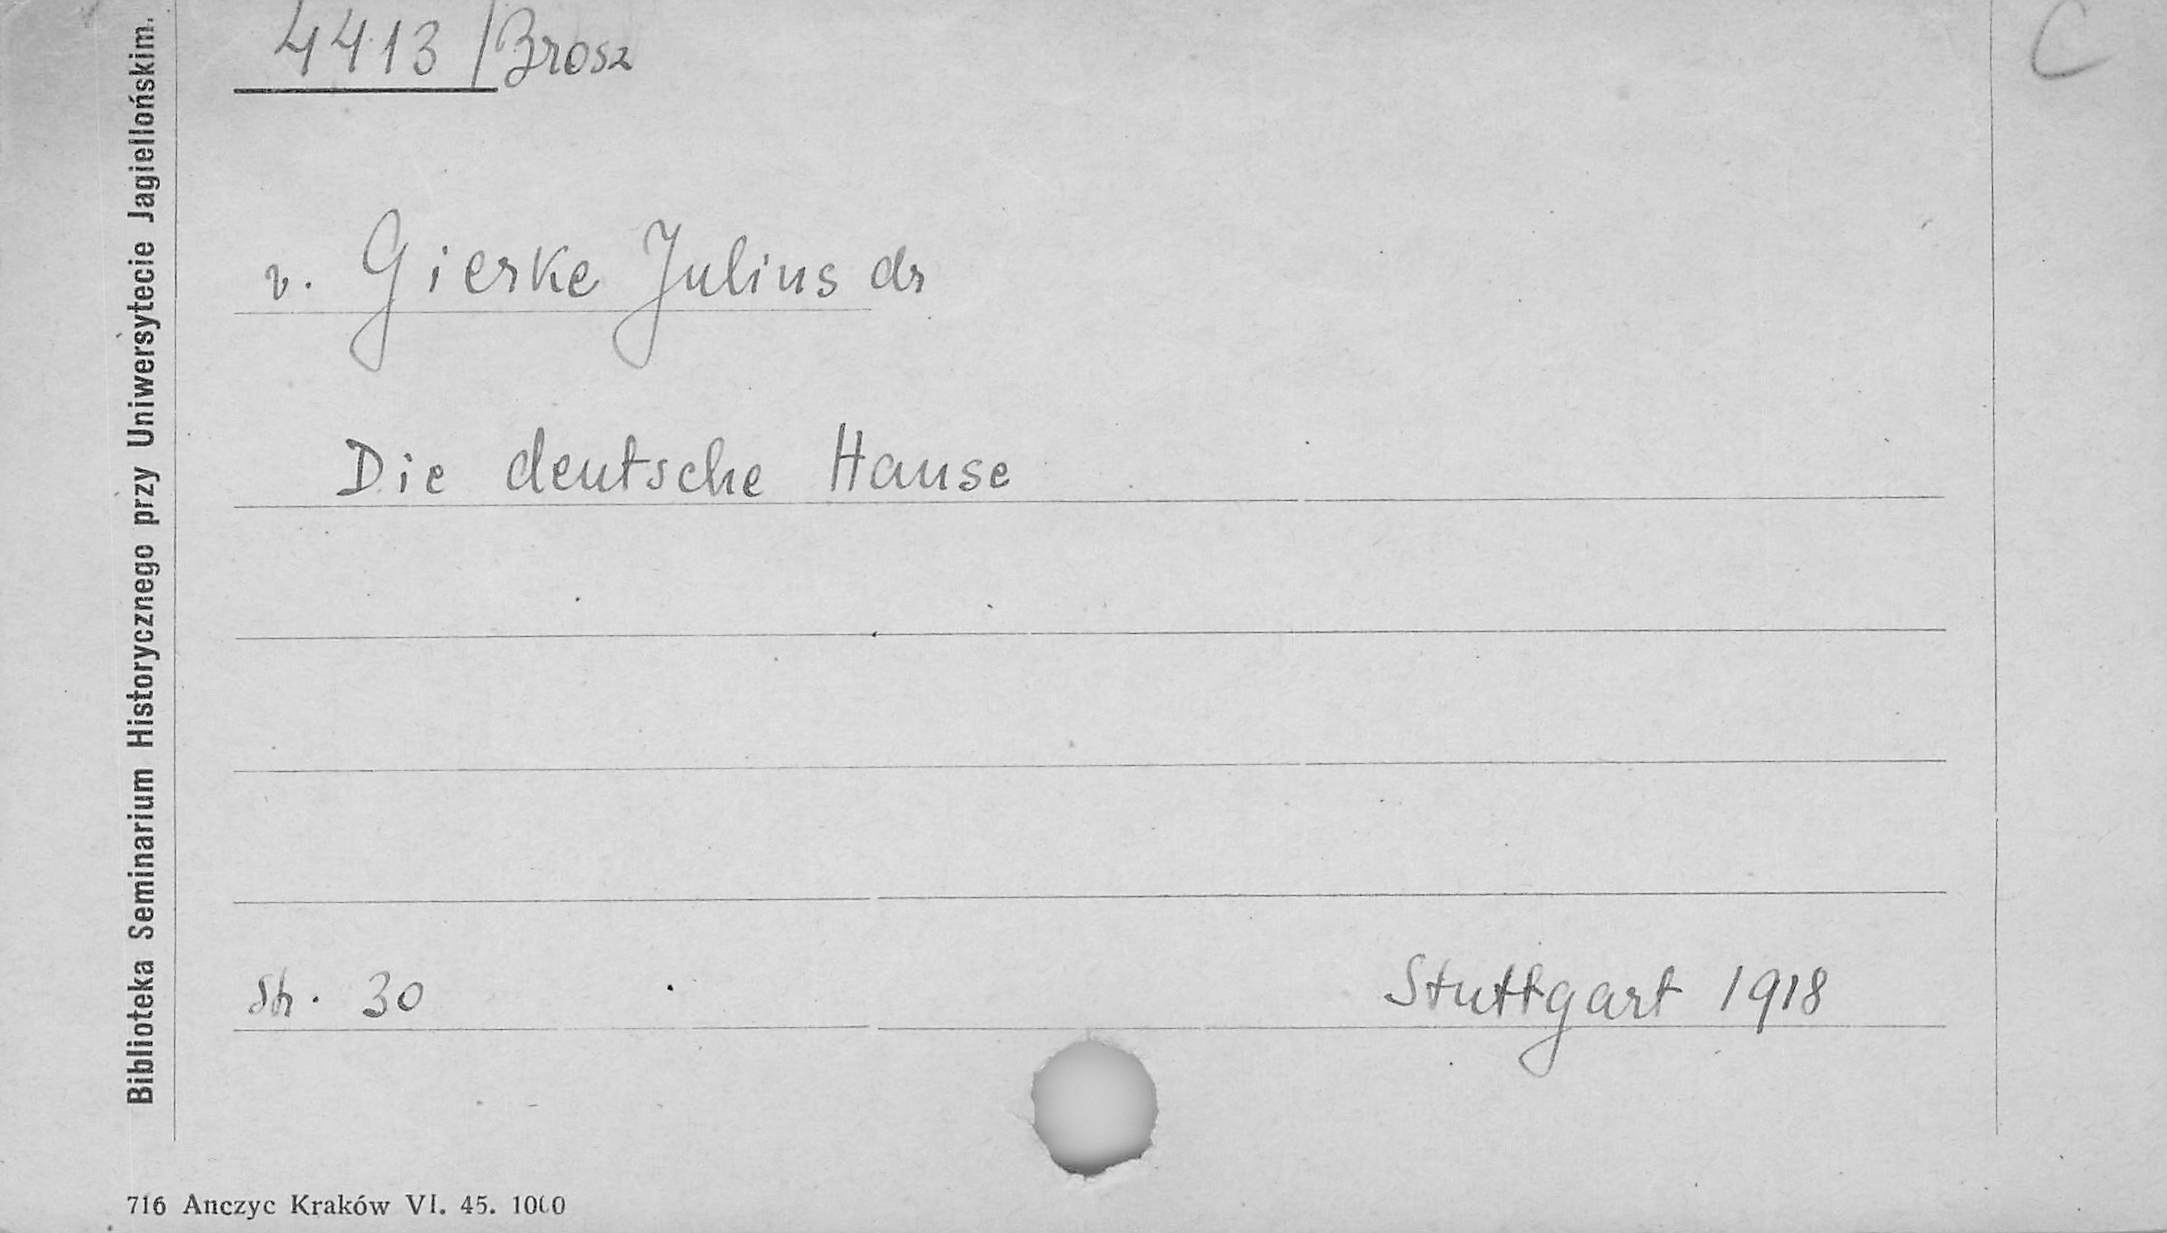 4413/Brosz
C
v. Gierke Julius dr
Die deutsche Hanse
Str. 30
Stuttgart 1918
Biblioteka Seminarium Historycznego przy Uniwersytecie Jagiellońskim.
716 Anczyc Kraków VI. 45. 1000